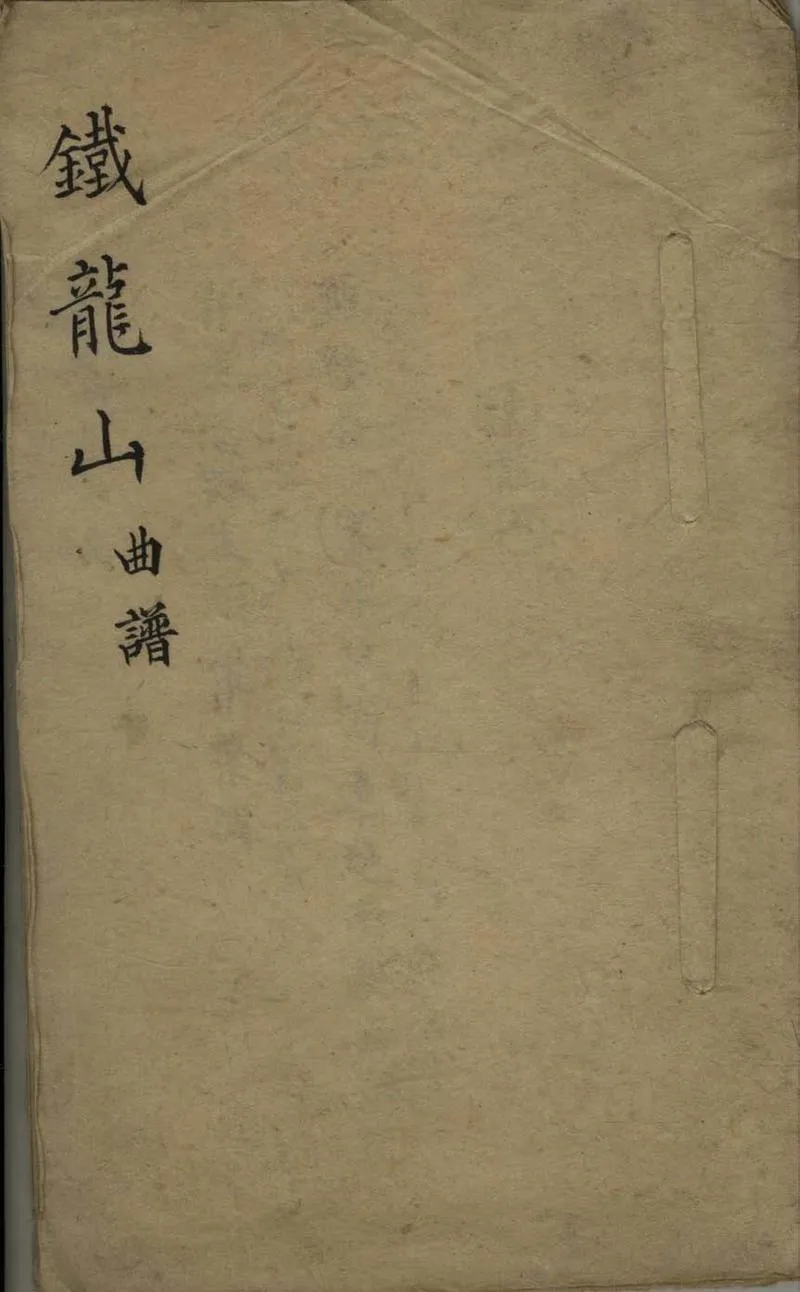 鐵龍山曲譜